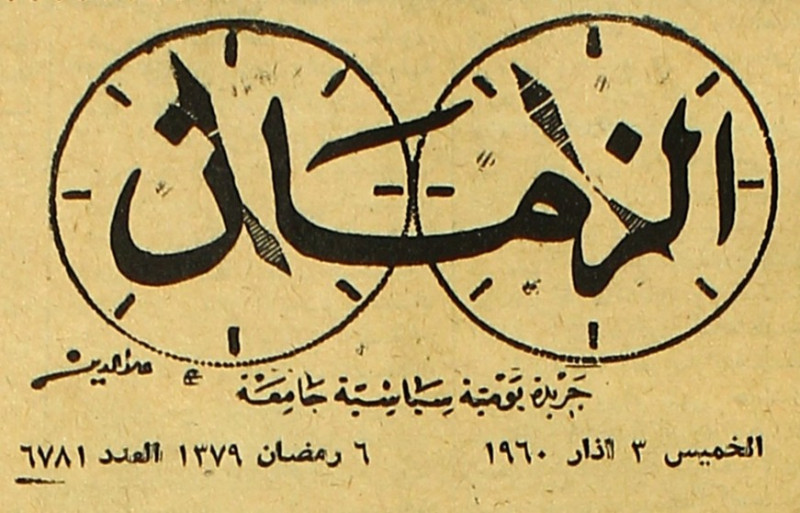 الزمان
علاء الدين
جريدة يومية سياسية جامعة
الخميس ٣ اذار ١٩٦٠ ٦ رمضان ١٣٧٩ العدد ٦٧٨١